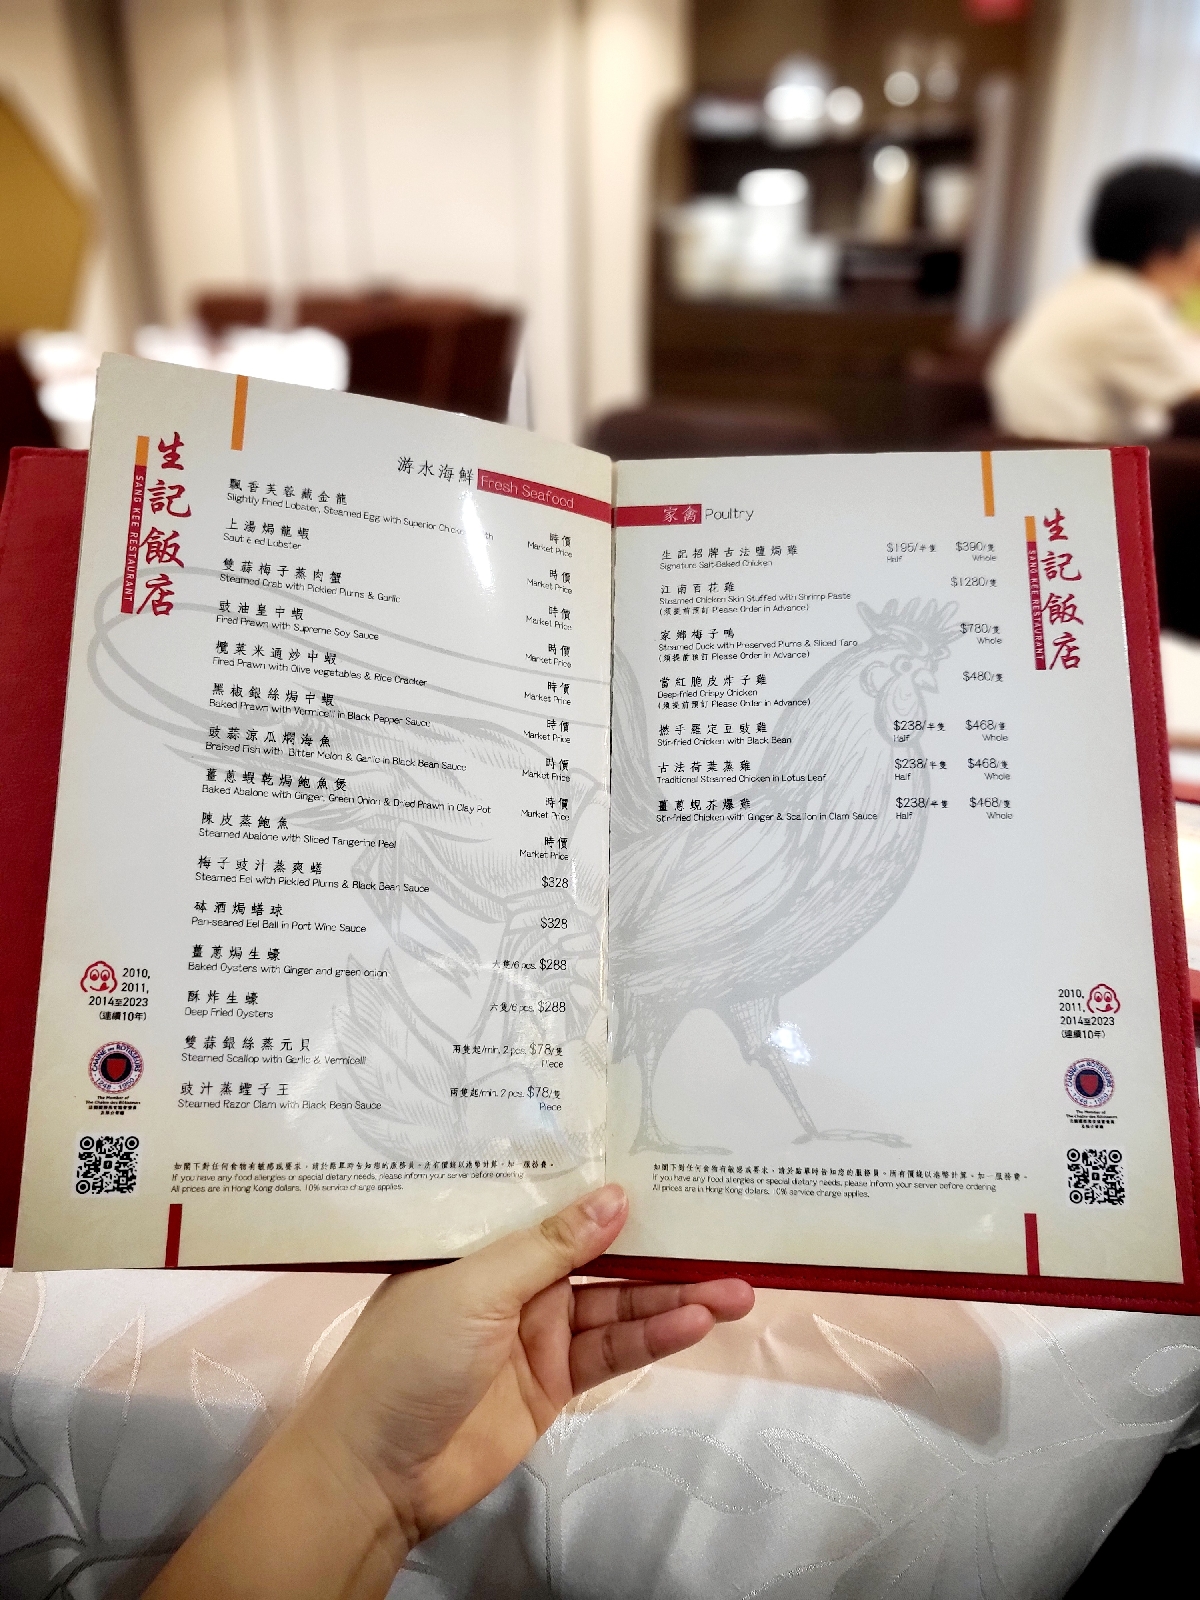 生記飯店
SANG KEE RESTAURANT
游水海鮮 Fresh Seafood
飄香芙蓉藏金龍
Slightly Fried Lobster, Steamed Egg with Superior
時價
Market Price
上湯焗龍蝦
Lobster
時價
Market Price
雙蒜梅子蒸肉蟹
Steamed Crab with Pickled Plums & Garlic
時價
Market Price
豉油皇中蝦
Fired Prawn with Supreme Soy Sauce
時價
Market Price
欖菜米通炒中蝦
Fired Prawn with Olive vegetables & Rice Cracker
時價
Market Price
黑椒銀絲焗中蝦
Baked Prawn with Vermicelli in Black Pepper Sauce
時價
Market Price
豉蒜涼瓜燜海魚
Braised Fish with Bitter Melon & Garlic in Black Bean Sauce
時價
Market Price
薑蔥蝦乾焗鮑魚煲
Baked Abalone with Ginger, Green Onion & Dried Prawn in Clay Pot
時價
Market Price
陳皮蒸鮑魚
Steamed Abalone with Sliced Tangerine Peel
時價
Market Price
梅子豉汁蒸爽蟮
Steamed Eel with Pickled Plums & Black Bean Sauce
$328
砵酒焗蟮球
Pan-seared Eel Ball in Port Wine Sauce
$328
薑蔥焗生蠔
Baked Oysters with Ginger and green onion
六隻/6 pcs. $288
酥炸生蠔
Deep Fried Oysters
六隻/6 pcs. $288
雙蒜銀絲蒸元貝
Steamed Scallop with Garlic & Vermicelli
兩隻起/min. 2 pcs. $78/隻
Piece
豉汁蒸蟶子王
Steamed Razor Clam with Black Bean Sauce
兩隻起/min. 2 pcs. $78/隻
Piece
2010,
2011,
2014至2023
(連續10年)
CHAINE DES ROTISSEURS
1248 - 1950
The Member of
The Chaine des Rôtisseurs
如閣下對任何食物有敏感或要求，請於點單時告知您的服務員。所有價錢以港幣計算。加一服務費。
If you have any food allergies or special dietary needs, please inform your server before ordering
All prices are in Hong Kong dollars. 10% service charge applies.
家禽 Poultry
生記飯店
SANG KEE RESTAURANT
生記招牌古法鹽焗雞
Signature Salt-Baked Chicken
$195/半隻
Half
$390/隻
Whole
江南百花雞
Steamed Chicken Skin Stuffed with Shrimp Paste
(須提前預訂 Please Order in Advance)
$1280/隻
家鄉梅子鴨
Steamed Duck with Preserved Plums & Sliced Taro
(須提前預訂 Please Order in Advance)
$780/隻
Whole
當紅脆皮炸子雞
Deep-fried Crispy Chicken
(須提前預訂 Please Order in Advance)
$480/隻
撚手羅定豆豉雞
Stir-fried Chicken with Black Bean
$238/半隻
Half
$468/隻
Whole
古法荷葉蒸雞
Traditional Steamed Chicken in Lotus Leaf
$238/半隻
Half
$468/隻
Whole
薑蔥蜆芥爆雞
Stir-fried Chicken with Ginger & Scallion in Clam Sauce
$238/半隻
Half
$468/隻
Whole
2010,
2011,
2014至2023
(連續10年)
CHAINE DES ROTISSEURS
1248 - 1950
The Member of
The Chaine des Rôtisseurs
如閣下對任何食物有敏感或要求，請於點單時告知您的服務員。所有價錢以港幣計算。加一服務費。
If you have any food allergies or special dietary needs, please inform your server before ordering
All prices are in Hong Kong dollars. 10% service charge applies.